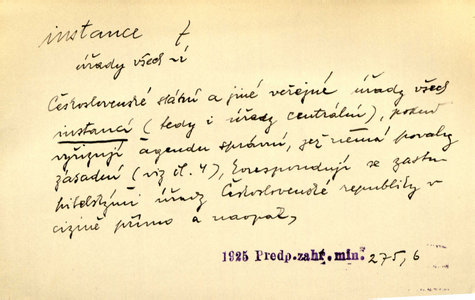 instance f
úřady všech í
Československé státní a jiné veřejné úřady všech
instancí (tedy i úřady centrální), pokud
vyřizují agendu správní, jež nemá povahy
zásadní (viz čl. 4), korespondují se zastu-
pitelskými úřady Československé republiky v
cizině přímo a naopak,
1925 Předp. zahr. min. 275,6